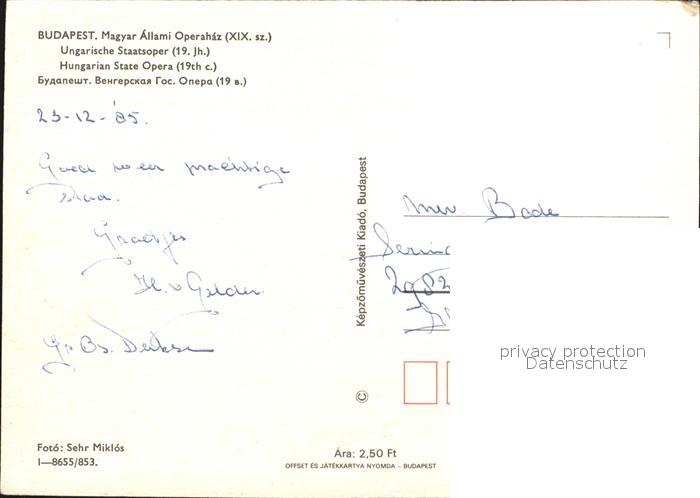 BUDAPEST. Magyar Állami Operaház (XIX. sz.)
Ungarische Staatsoper (19. Jh.)
Hungarian State Opera (19th c.)
Будапешт. Венгерская Гос. Опера (19 в.)
23-12-'85.
prachtige
stad.
Groetjes
H. v Gelder.
Képzőművészeti Kiadó, Budapest
©
Mev. Bade
2982
privacy protection
Datenschutz
Fotó: Sehr Miklós
I—8655/853.
Ára: 2,50 Ft
OFFSET ÉS JÁTÉKKÁRTYA NYOMDA – BUDAPEST